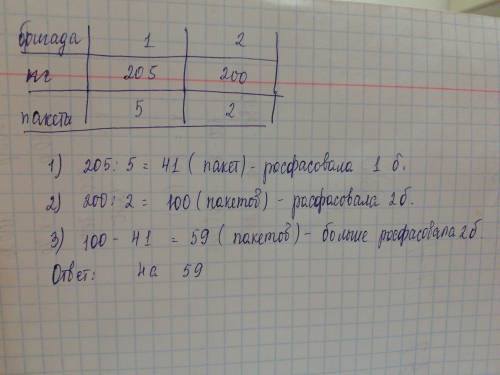 бригада 1 2
кг 205 200
пакета 5 2
1) 205 : 5 = 41 ( пакет) - росфасовала 1 б.
2) 200 : 2 = 100 (пакетов) - расфасовала 2 б.
3) 100 - 41 = 59 ( пакетов) - больше росфасовала 2 б.
Ответ: на 59